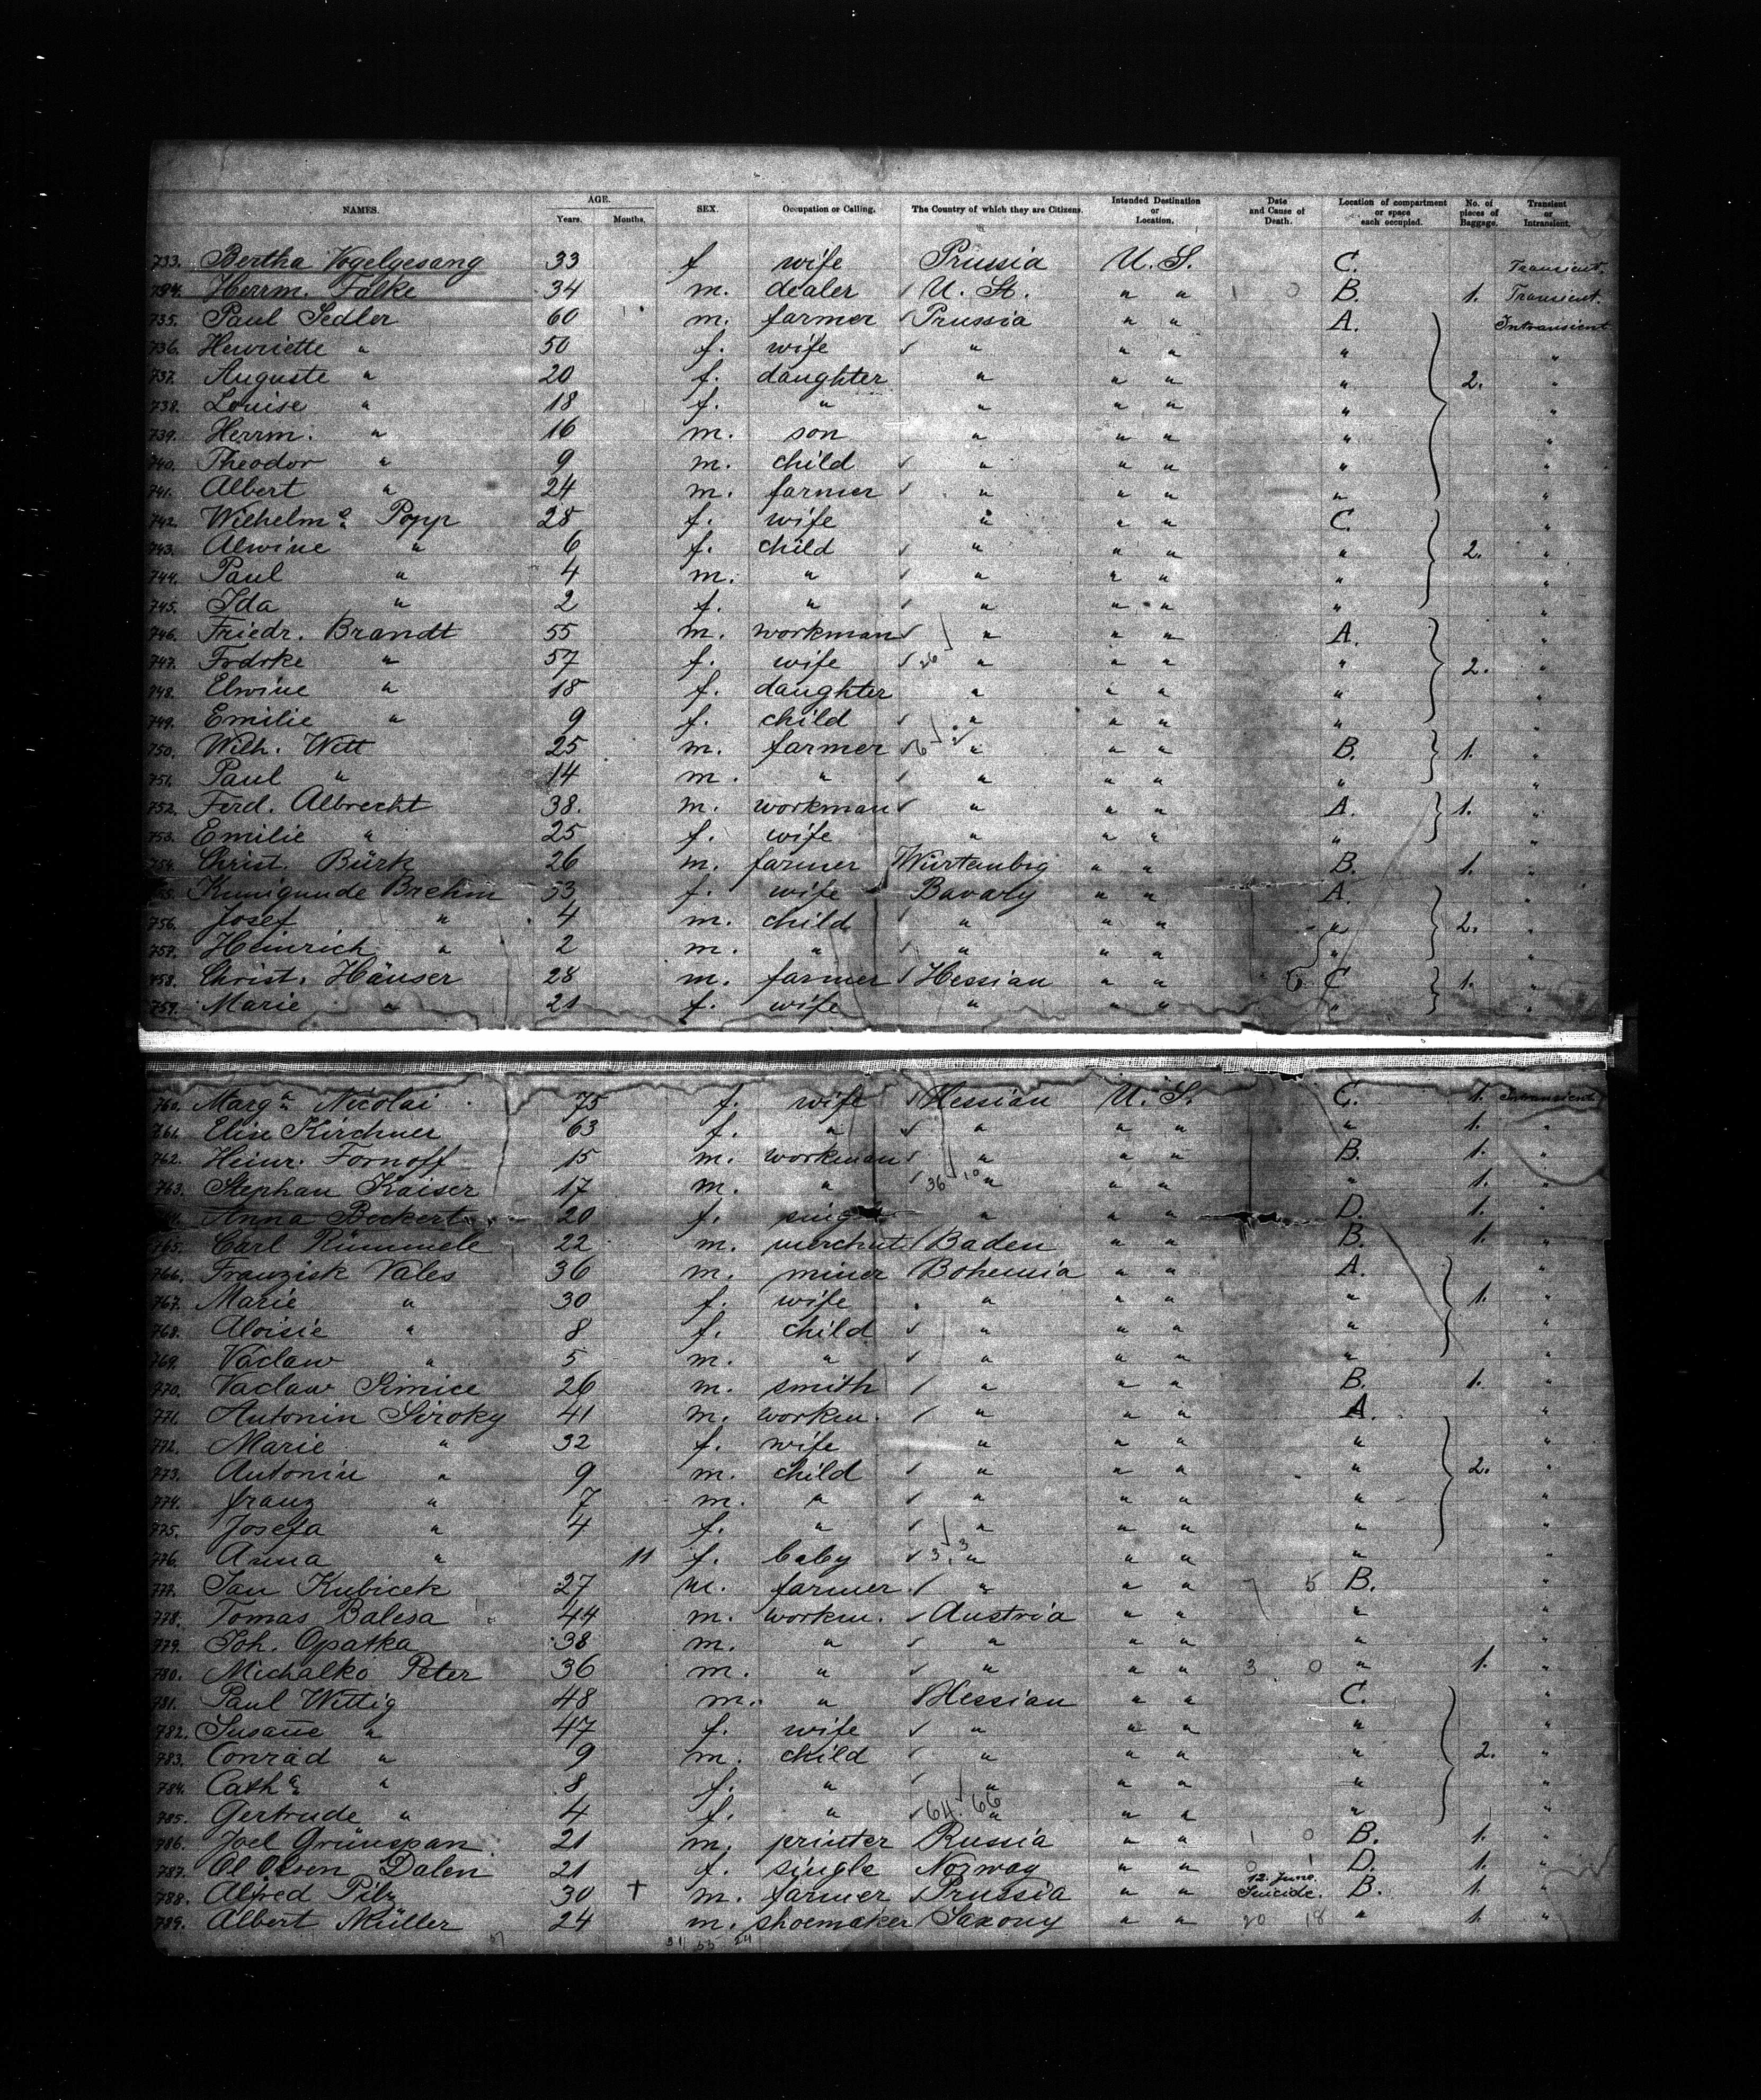 NAMES. AGE. Years. Months. SEX. Occupation or Calling. The Country of which they are Citizens. Intended Destination or Location. Date and Cause of Death. Location of compartment or space each occupied. No. of pieces of Baggage. Transient or Intransient.
733. Bertha Vogelgesang 33 f wife Prussia U. S. C. Transient.
734. Herrm. Falke 34 m. dealer U. St. " " 1 0 B. 1. Transient.
735. Paul Sedler 60 m. farmer Prussia " " A. Intransient
736. Henriette " 50 f. wife " " " " "
737. Auguste " 20 f. daughter " " " " 2. "
738. Louise " 18 f. " " " " " "
739. Herrm. " 16 m. son " " " " "
740. Theodor " 9 m. child " " " " "
741. Albert " 24 m. farmer " " " " "
742. Wilhelm<sup>e</sup> Popp 28 f. wife " " " C. "
743. Alwine " 6 f. child " " " " 2. "
744. Paul " 4 m. " " " " " "
745. Ida " 2 f. " " " " " "
746. Friedr. Brandt 55 m. workman " " " A. "
747. Frdrke " 57 f. wife 26 " " " " 2. "
748. Elwine " 18 f. daughter " " " " "
749. Emilie " 9 f. child " " " " "
750. Wilh. Witt 25 m. farmer " " " B. 1. "
751. Paul " 14 m. " " " " " "
752. Ferd. Albrecht 38. m. workman " " " A. 1. "
753. Emilie " 25 f. wife " " " " "
754. Christ. Bürk 26 m. farmer Würtembrg " " B. 1. "
755. Kunigunde Brehm 33 f. wife Bavary " " A. "
756. Josef " 4 m. child " " " " 2. "
757. Heinrich " 2 m. " " " " " "
758. Christ. Häuser 28 m. farmer Hessian " " 6 C 1. "
759. Marie " 21 f. wife " " " " "
760. Marg<sup>a</sup> Nicolai 75 f. wife Hessian U. S. C. 1. Intransient
761. Elise Kirchner 63 f. " " " " " 1. "
762. Heinr. Fornoff 15 m. workman " " " B. 1. "
763. Stephan Kaiser 17 m. " 36 10 " " " " 1. "
764. Anna Beckert 20 f. " " " D. 1. "
765. Carl Rümmele 22 m. merchnt Baden " " B. 1. "
766. Franzisk Vales 36 m. miner Bohemia " " A. "
767. Marie " 30 f. wife " " " " 1. "
768. Aloisie " 8 f. child " " " " "
769. Vaclaw " 5 m. " " " " " "
770. Vaclaw Simice 26 m. smith " " " B. 1. "
771. Antonin Siroky 41 m. workm. " " " A. "
772. Marie " 32 f. wife " " " " "
773. Antonin " 9 m. child " " " " 2. "
774. franz " 7 m. " " " " " "
775. Josefa " 4 f. " " " " " "
776. Anna " 11 f. baby 3 3 " " " " "
777. Jan Kubicek 27 m. farmer " " " 7 5 B. "
778. Tomas Balesa 44 m. workm. Austria " " " "
779. Joh. Opatka 38 m. " " " " " "
780. Michalko Peter 36 m. " " " " 3 0 " 1. "
781. Paul Wittig 48 m. " Hessian " " C. "
782. Susañe " 47 f. wife " " " " "
783. Conrad " 9 m. child " " " " 2. "
784. Cath<sup>a</sup> " 8 f. " " " " " "
785. Gertrude " 4 f. " 64 66 " " " " "
786. Joel Grünspan 21 m. printer Russia " " 1 0 B. 1. "
787. Ol Olsen Dalen 21 f. single Norway " " 0 1 D. 1. "
788. Alfred Pilz 30 † m. farmer Prussia " " 12. June. Suicide. B. 1. "
789. Albert Müller 24 m. shoemaker Saxony " " 20 18 " 1. "